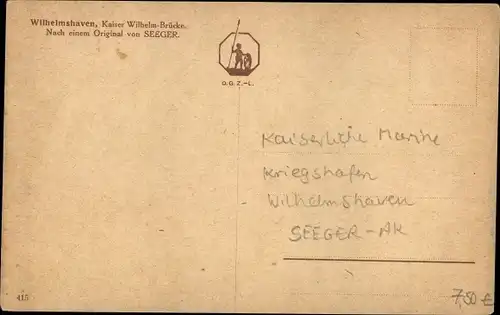 Wilhelmshaven, Kaiser Wilhelm-Brücke.
Nach einem Original von SEEGER.
O.G.Z.-L.
Kaiserliche Marine
Kriegshafen
Wilhelmshaven
SEEGER-AK
415
7,50 €